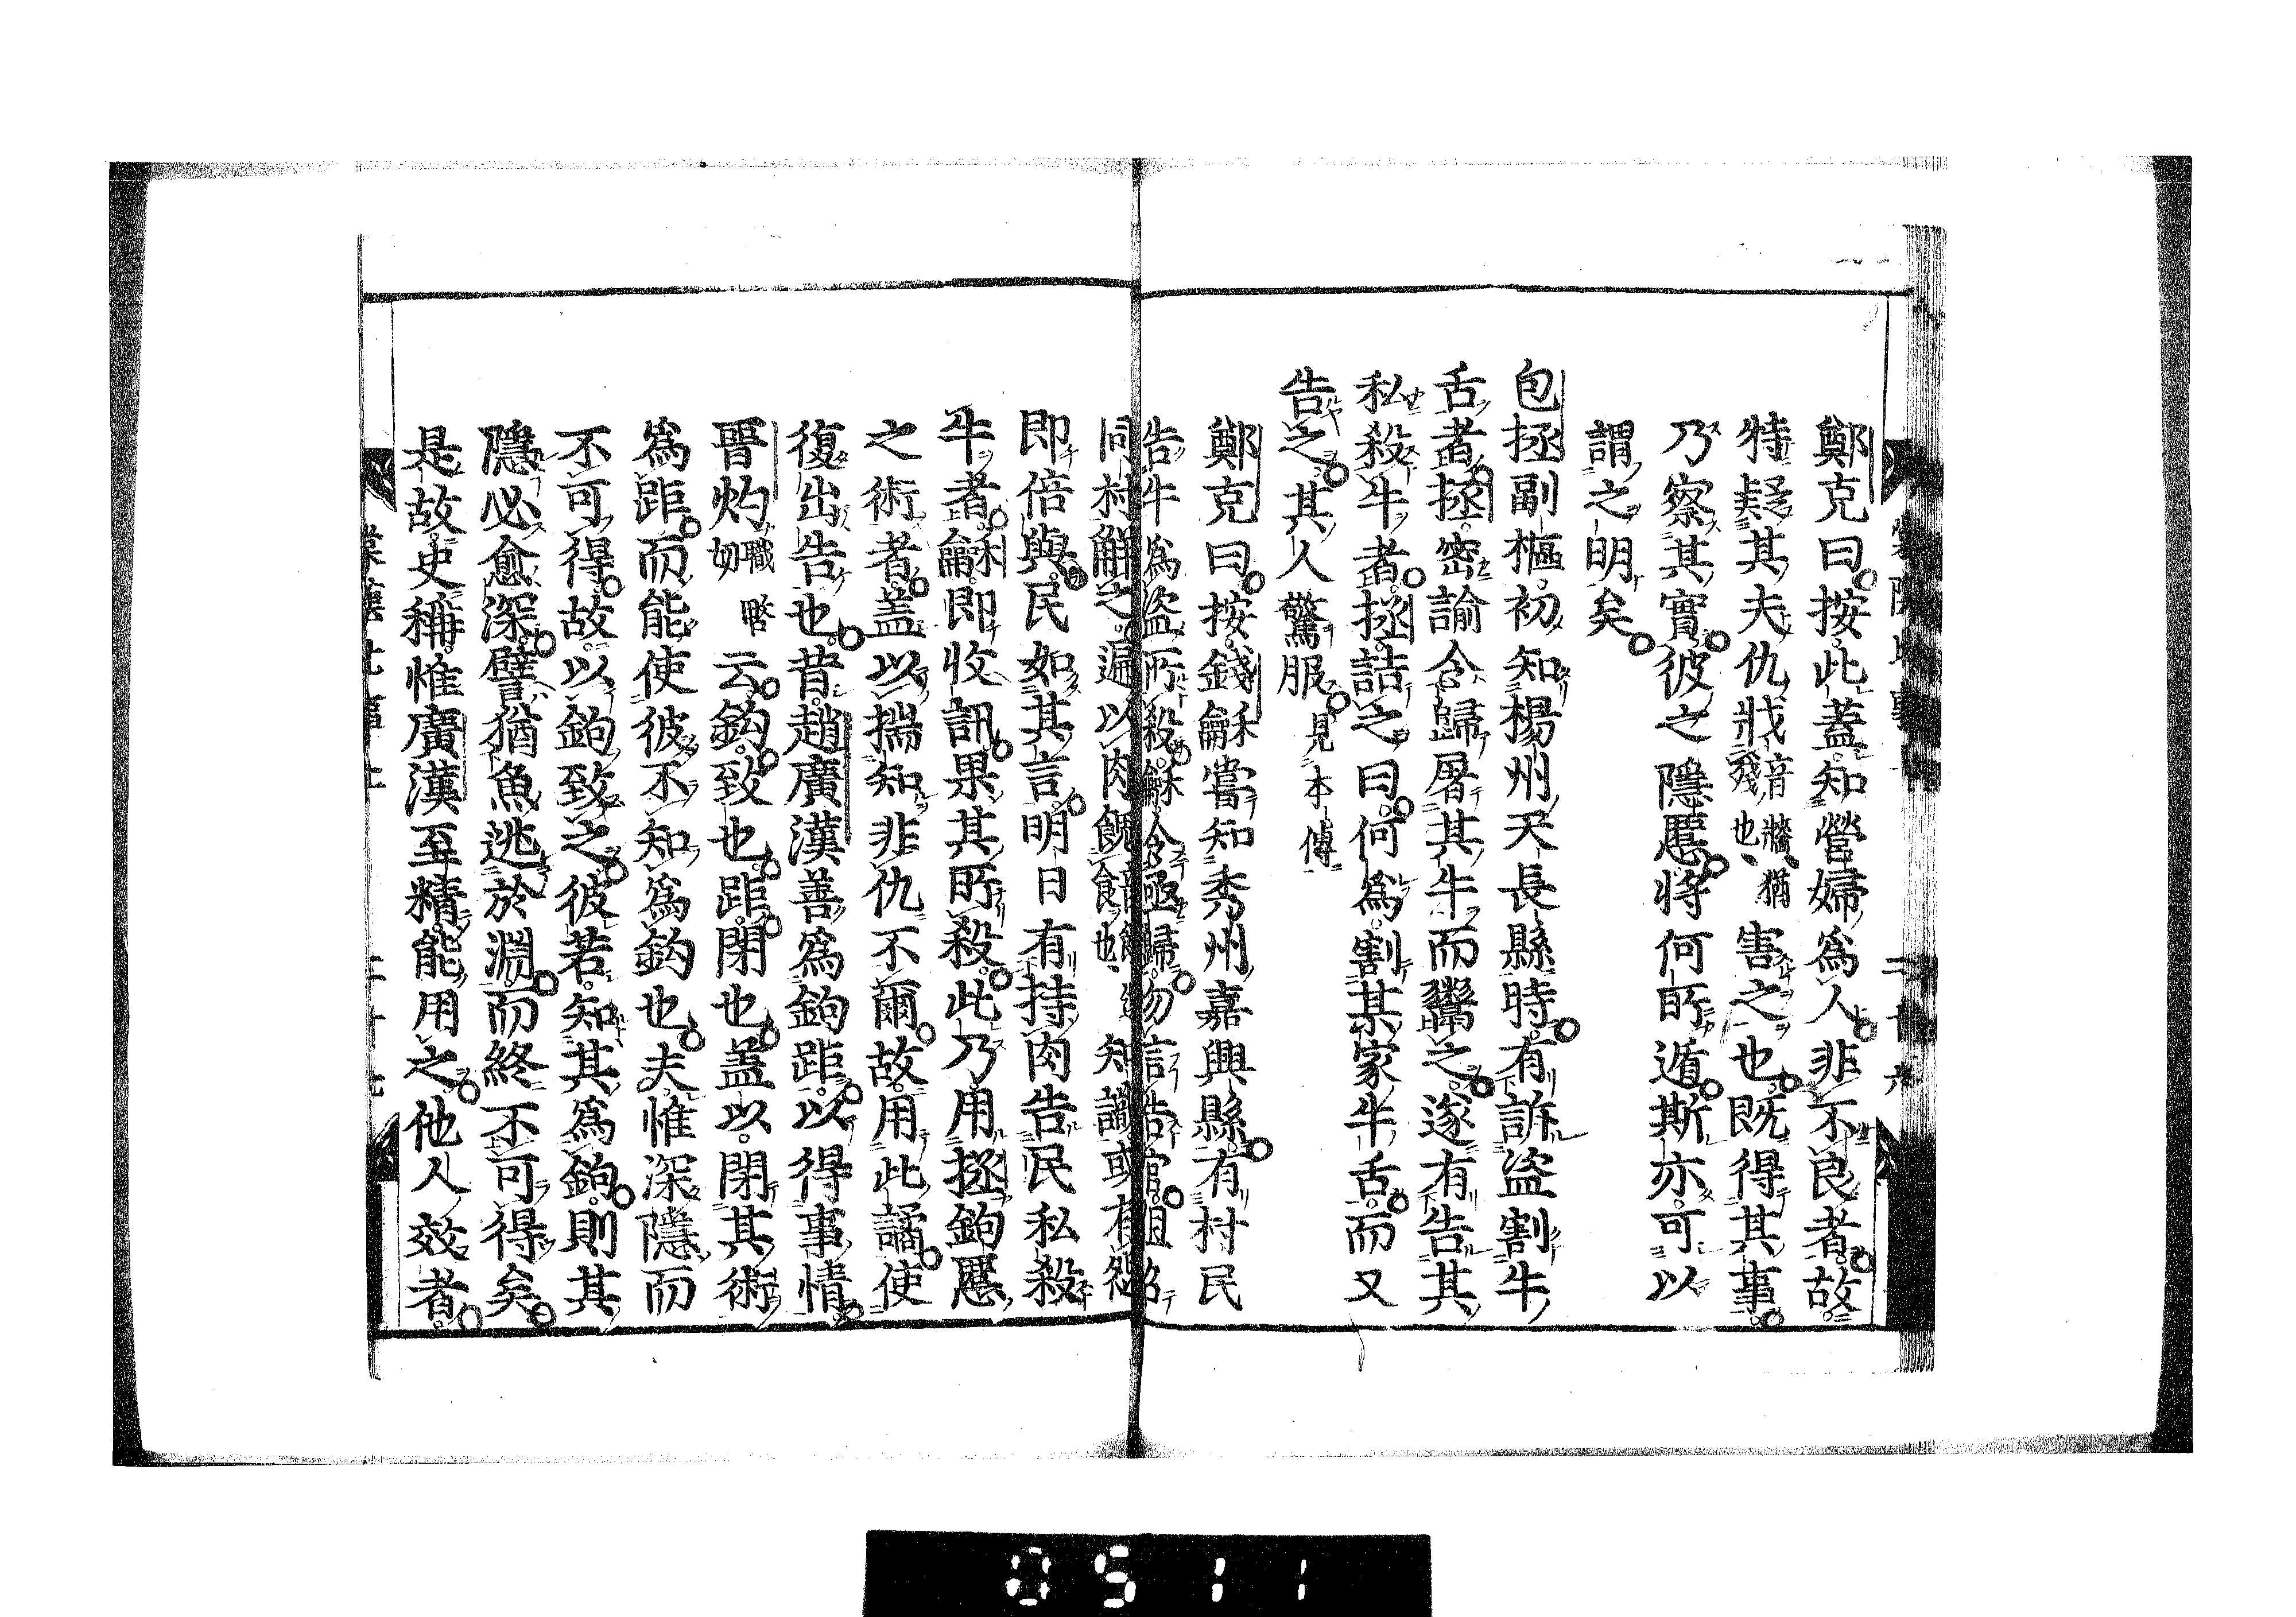 鄭克曰按此蓋知營婦爲人非不良者故
特疑其夫仇戕音牆猶殘也害之也既得其事
乃察其實彼之隱慝將何所遁斯亦可以
謂之明矣
包拯副樞初知楊州天長縣時有訴盜割牛
舌者拯密諭令歸屠其牛而鬻之遂有告其
私殺牛者拯詰之曰何爲割某家牛舌而又
告之其人驚服見本傳
鄭克曰按錢龢嘗知秀州嘉興縣有村民
告牛爲盜所殺龢令亟歸勿言告官但召
同村解之遍以肉餽知識或有怨
即倍與民如其言明日有持肉告民私殺
牛者龢即收訊果其所殺此乃用拯鉤慝
之術者盖以揣知非仇不爾故用此譎使
復出告也昔趙廣漢善爲鉤距以得事情
晋灼職畧切云鈎致也距閉也盖以閉其術
爲距而能使彼不知爲鈎也夫惟深隱而
不可得故以鉤致之彼若知其爲鉤則其
隱必愈深譬猶魚逃於淵而終不可得矣
是故史稱惟廣漢至精能用之他人效者
0511